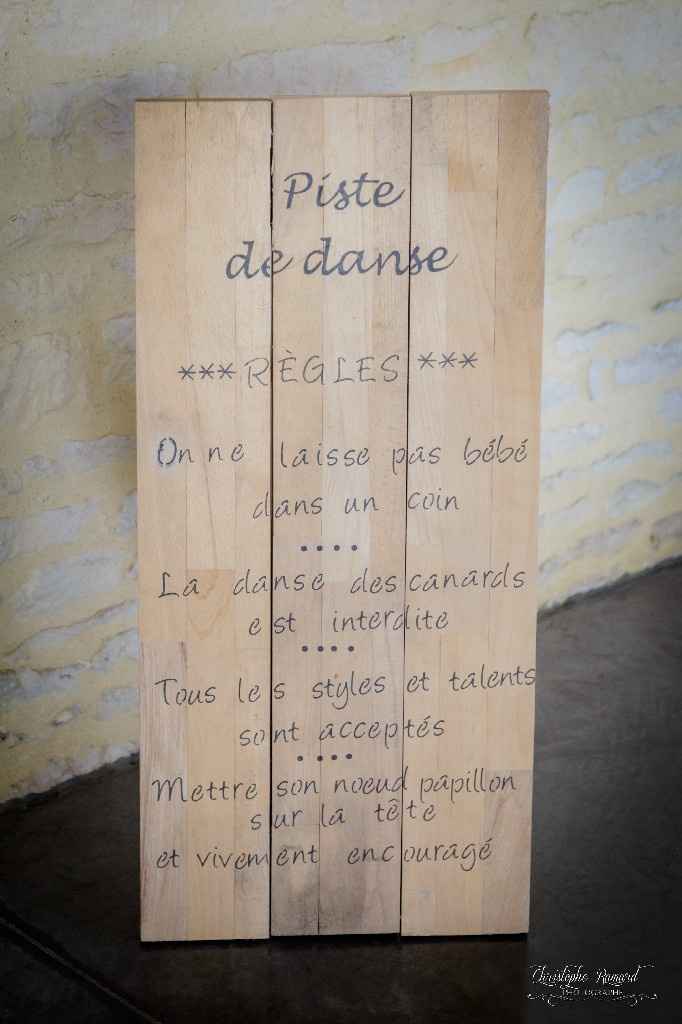 Piste
de danse
*** RÈGLES ***
On ne laisse pas bébé
dans un coin
....
La danse des canards
est interdite
....
Tous les styles et talents
sont acceptés
....
Mettre son noeud papillon
sur la tête
et vivement encouragé
Christophe Ramard
PHOTOGRAPHE